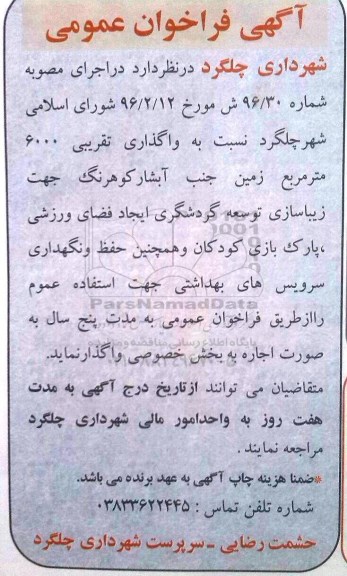 آگهی فراخوان عمومی
شهرداری چلگرد درنظردارد دراجرای مصوبه
شماره ۹۶/۳۰ ش مورخ ۹۶/۲/۱۲ شورای اسلامی
شهرچلگرد نسبت به واگذاری تقریبی ۶۰۰۰
مترمربع زمین جنب آبشارکوهرنگ جهت
زیباسازی توسعه گردشگری ایجاد فضای ورزشی
،پارک بازی کودکان وهمچنین حفظ ونگهداری
سرویس های بهداشتی جهت استفاده عموم
ParsNamadData
راازطریق فراخوان عمومی به مدت پنج سال به
پایگاه اطلاع رسانی مناقصه و مزایده
صورت اجاره به بخش خصوصی واگذارنماید.
متقاضیان می توانند ازتاریخ درج آگهی به مدت
هفت روز به واحدامور مالی شهرداری چلگرد
مراجعه نمایند .
*ضمنا هزینه چاپ آگهی به عهد برنده می باشد.
شماره تلفن تماس : ۰۳۸۳۳۶۲۲۴۴۵
حشمت رضایی _ سرپرست شهرداری چلگرد